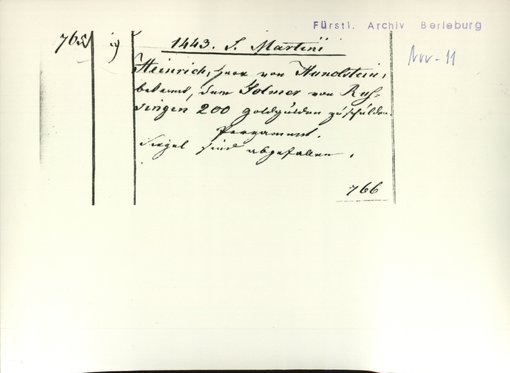 Fürstl. Archiv Berleburg
Nov. 11
765 19 1443. S. Martini
Heinrich, herr von Hundstein,
bekennt, dem Folmer von
singen 200 goldgülden zu schülden.
Pergament.
Siegel sind abgefallen.
766